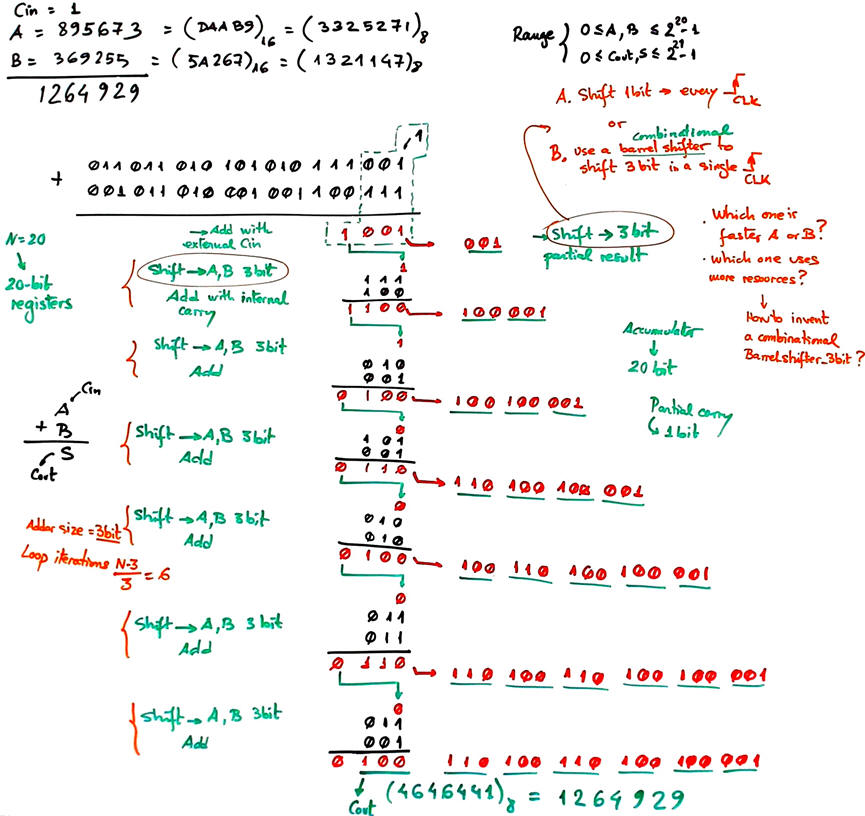 Cin = 1
A = 895673 = (DAAB9)16 = (3325271)8
B = 369255 = (5A267)16 = (1321147)8
1264929
Range { 0 ≤ A, B ≤ 2^20-1
0 ≤ Cout, S ≤ 2^21-1
A. Shift 1bit → every CLK
or
combinational
B. use a barrel shifter to
shift 3 bit in a single CLK
1
011 011 010 101 010 111 001
+ 001 011 010 001 001 100 111
→ Add with
external Cin
1 001 → 001
→ Shift → 3 bit
partial result
. Which one is
faster A or B?
. which one uses
more resources?
How to invent
a combinational
Barrelshifter_3bit ?
N=20
20-bit
registers
Shift → A, B 3bit
Add with internal
carry
1
111
100
1 100 → 100 001
Shift → A, B 3bit
Add
1
010
001
0 100 → 100 100 001
Accumulator
20 bit
Partial carry
1 bit
Cin
A
+ B
S
Cout
Shift → A, B 3bit
Add
0
101
001
0 110 → 110 100 100 001
Adder size = 3bit
Loop iterations N-3/3 = 6
Shift → A, B 3bit
Add
0
010
010
0 100 → 100 110 100 100 001
Shift → A, B 3 bit
Add
0
011
011
0 110 → 110 100 110 100 100 001
Shift → A, B 3bit
Add
0
011
001
0 100 110 100 110 100 100 001
Cout (4646441)8 = 1264929